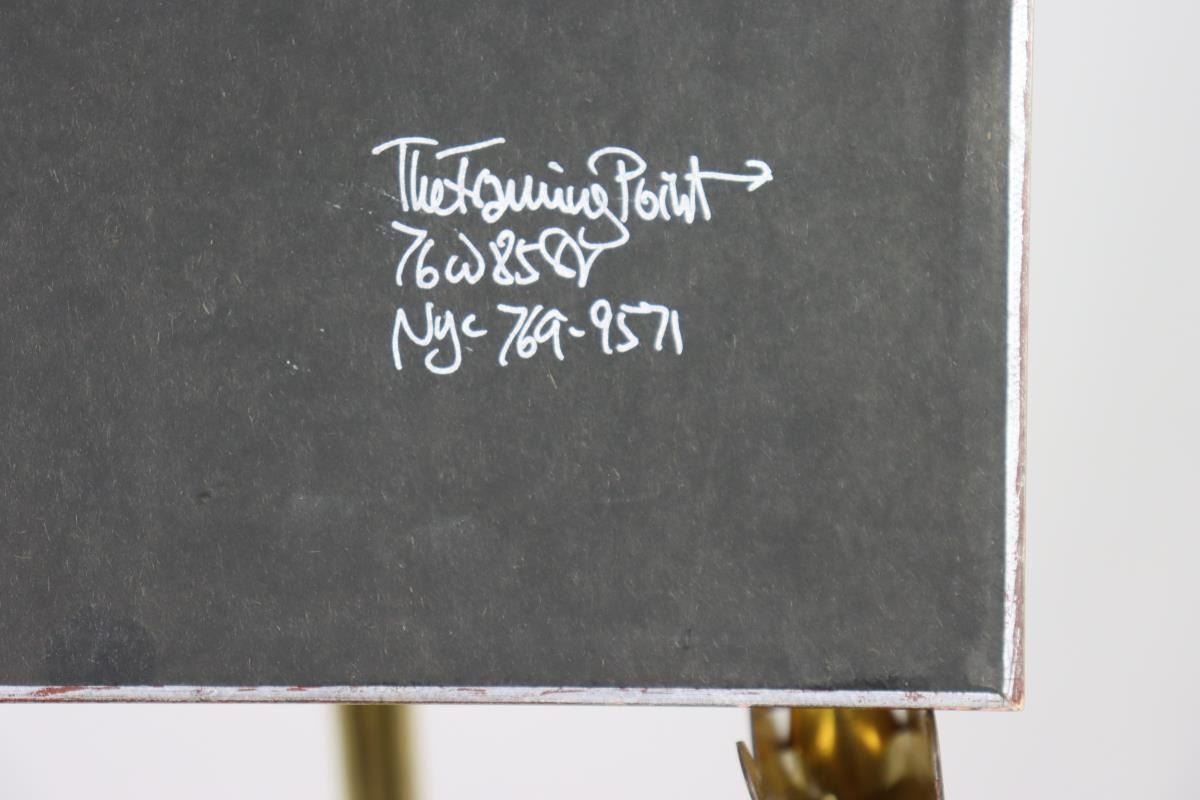 The Framing Point →
76 W 85 St
Nyc 769-9571